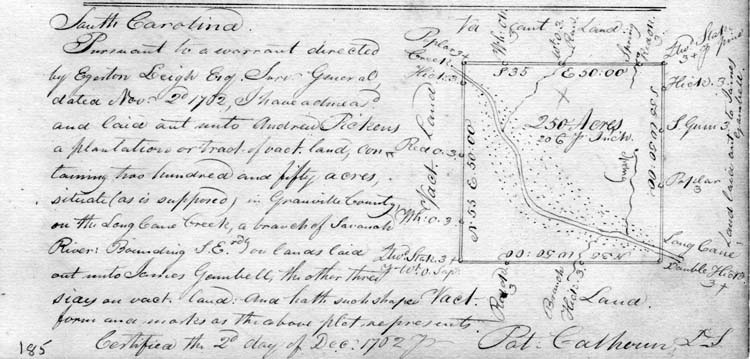 South Carolina.
Pursuant to a warrant directed
by Egerton Leigh Esq. Surv. General,
dated Nov. 2d 1762, I have admeas
and laid out unto Andrew Pickens
a plantation or tract of vact. land, con
taining two hundred and fifty acres,
situate (as is supposed) in Granville County
on the Long Cane Creek, a branch of Savanah
River: Bounding S.E.rdly on lands laid
out unto James Gambell, the other three
sides on vact. land: And hath such shape
form and marks as the above plot represents.
Certified the 2d day of Dec. 1762
Pat. Calhoun D.S.
185
Vacant Land
Poplar 3+
Creek
Hick. 3
Red O. 3+
Wh: O. 3+
Vact. Land
S 35 E 50:00
N 55 E 50:00
250 Acres
20 C p Inch.
Spring
Hick. 3+
S Gum 3+
Poplar
3
Long Cane
Double Hick.
3+
Land laid out to James
Gambell
Vact. Land.
Branch
Hick. 3+